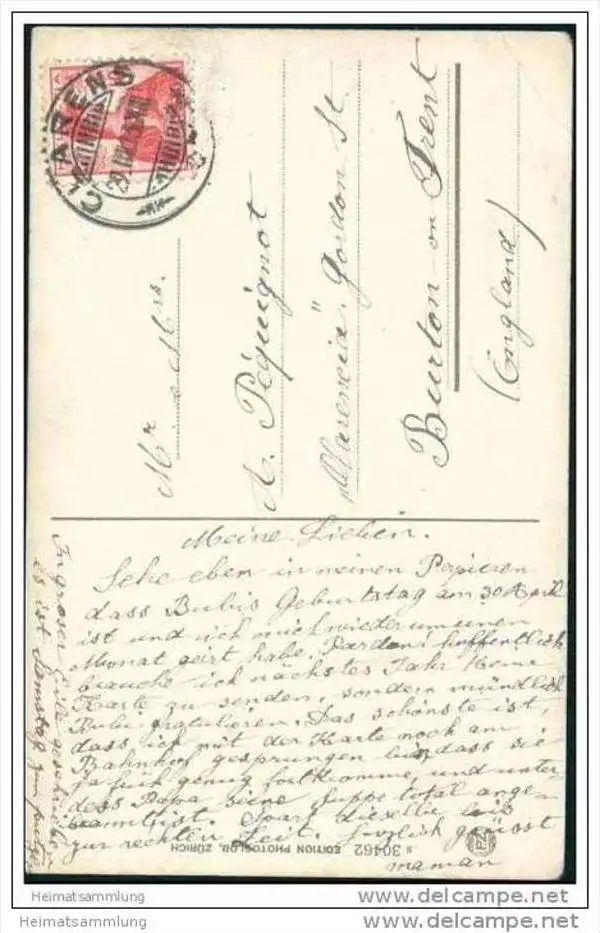 CLARENS
Mr. & Mrs.
A. Péquignot
"Clarencia" Gordon St.
Burton-on Trent
(England)
Meine Lieben.
Sehe eben in meinen Papieren
dass Bubis Geburtstag am 30 April
ist und ich mich wieder um einen
Monat geirt habe. Pardon! hoffentlich
brauche ich nächstes Jahr keine
Karte zu senden, sondern mündlich
Bubi gratulieren. Das schönste ist,
dass ich mit der Karte noch am
Bahnhof gesprungen bin, dass sie
ja früh genug fortkomme, und unter
dess Papa seine Suppe total ange
brannt ist. Spart dieselbe bis
zur rechten Zeit. Herzlich grüsst
maman
In groser Eile geschrieben
es ist Samstag zum putzen
30462 EDITION PHOTOGLOB, ZÜRICH
PZ
Heimatsammlung
delcampe.net
Heimatsammlung
delcampe.net